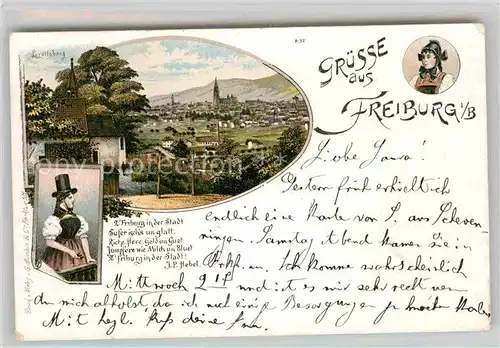 Lorettoberg
GRÜSSE
aus
FREIBURG i/B
Z'Friburg in der Stadt
Sufer isch's un glatt,
Richi Here, Geld un Guet
Jumpfere wie Milch un Bluet
Z'Friburg in der Stadt!
J.P. Hebel.
Liebe Laura!
Gestern früh erhielt ich
endlich eine Karte von S. aus Scheven
ningen. Samstag Abend kamen sie in
an. Ich komme wahrscheinlich
Mittwoch und ist es mir sehr recht wenn
du mich abholst da ich noch einige Besorgungen zu machen habe.
Mit hzgl. Kuß deine